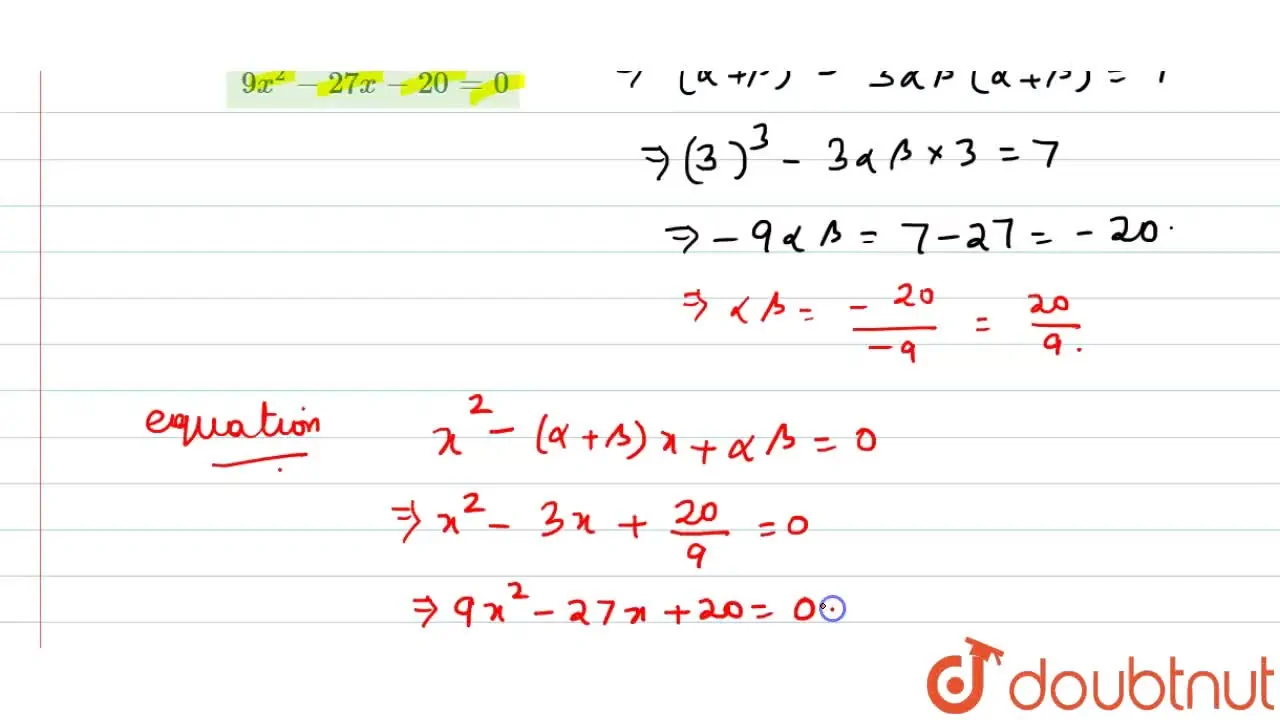 9x² − 27x − 20 = 0
⇒ (α+β) - 3αβ(α+β) =
⇒ (3)³ - 3αβ × 3 = 7
⇒ - 9αβ = 7 - 27 = - 20.
⇒ αβ = - 20 / - 9 = 20 / 9.
equation x² - (α + β)x + αβ = 0
⇒ x² - 3x + 20/9 = 0
⇒ 9x² - 27x + 20 = 0.
doubtnut